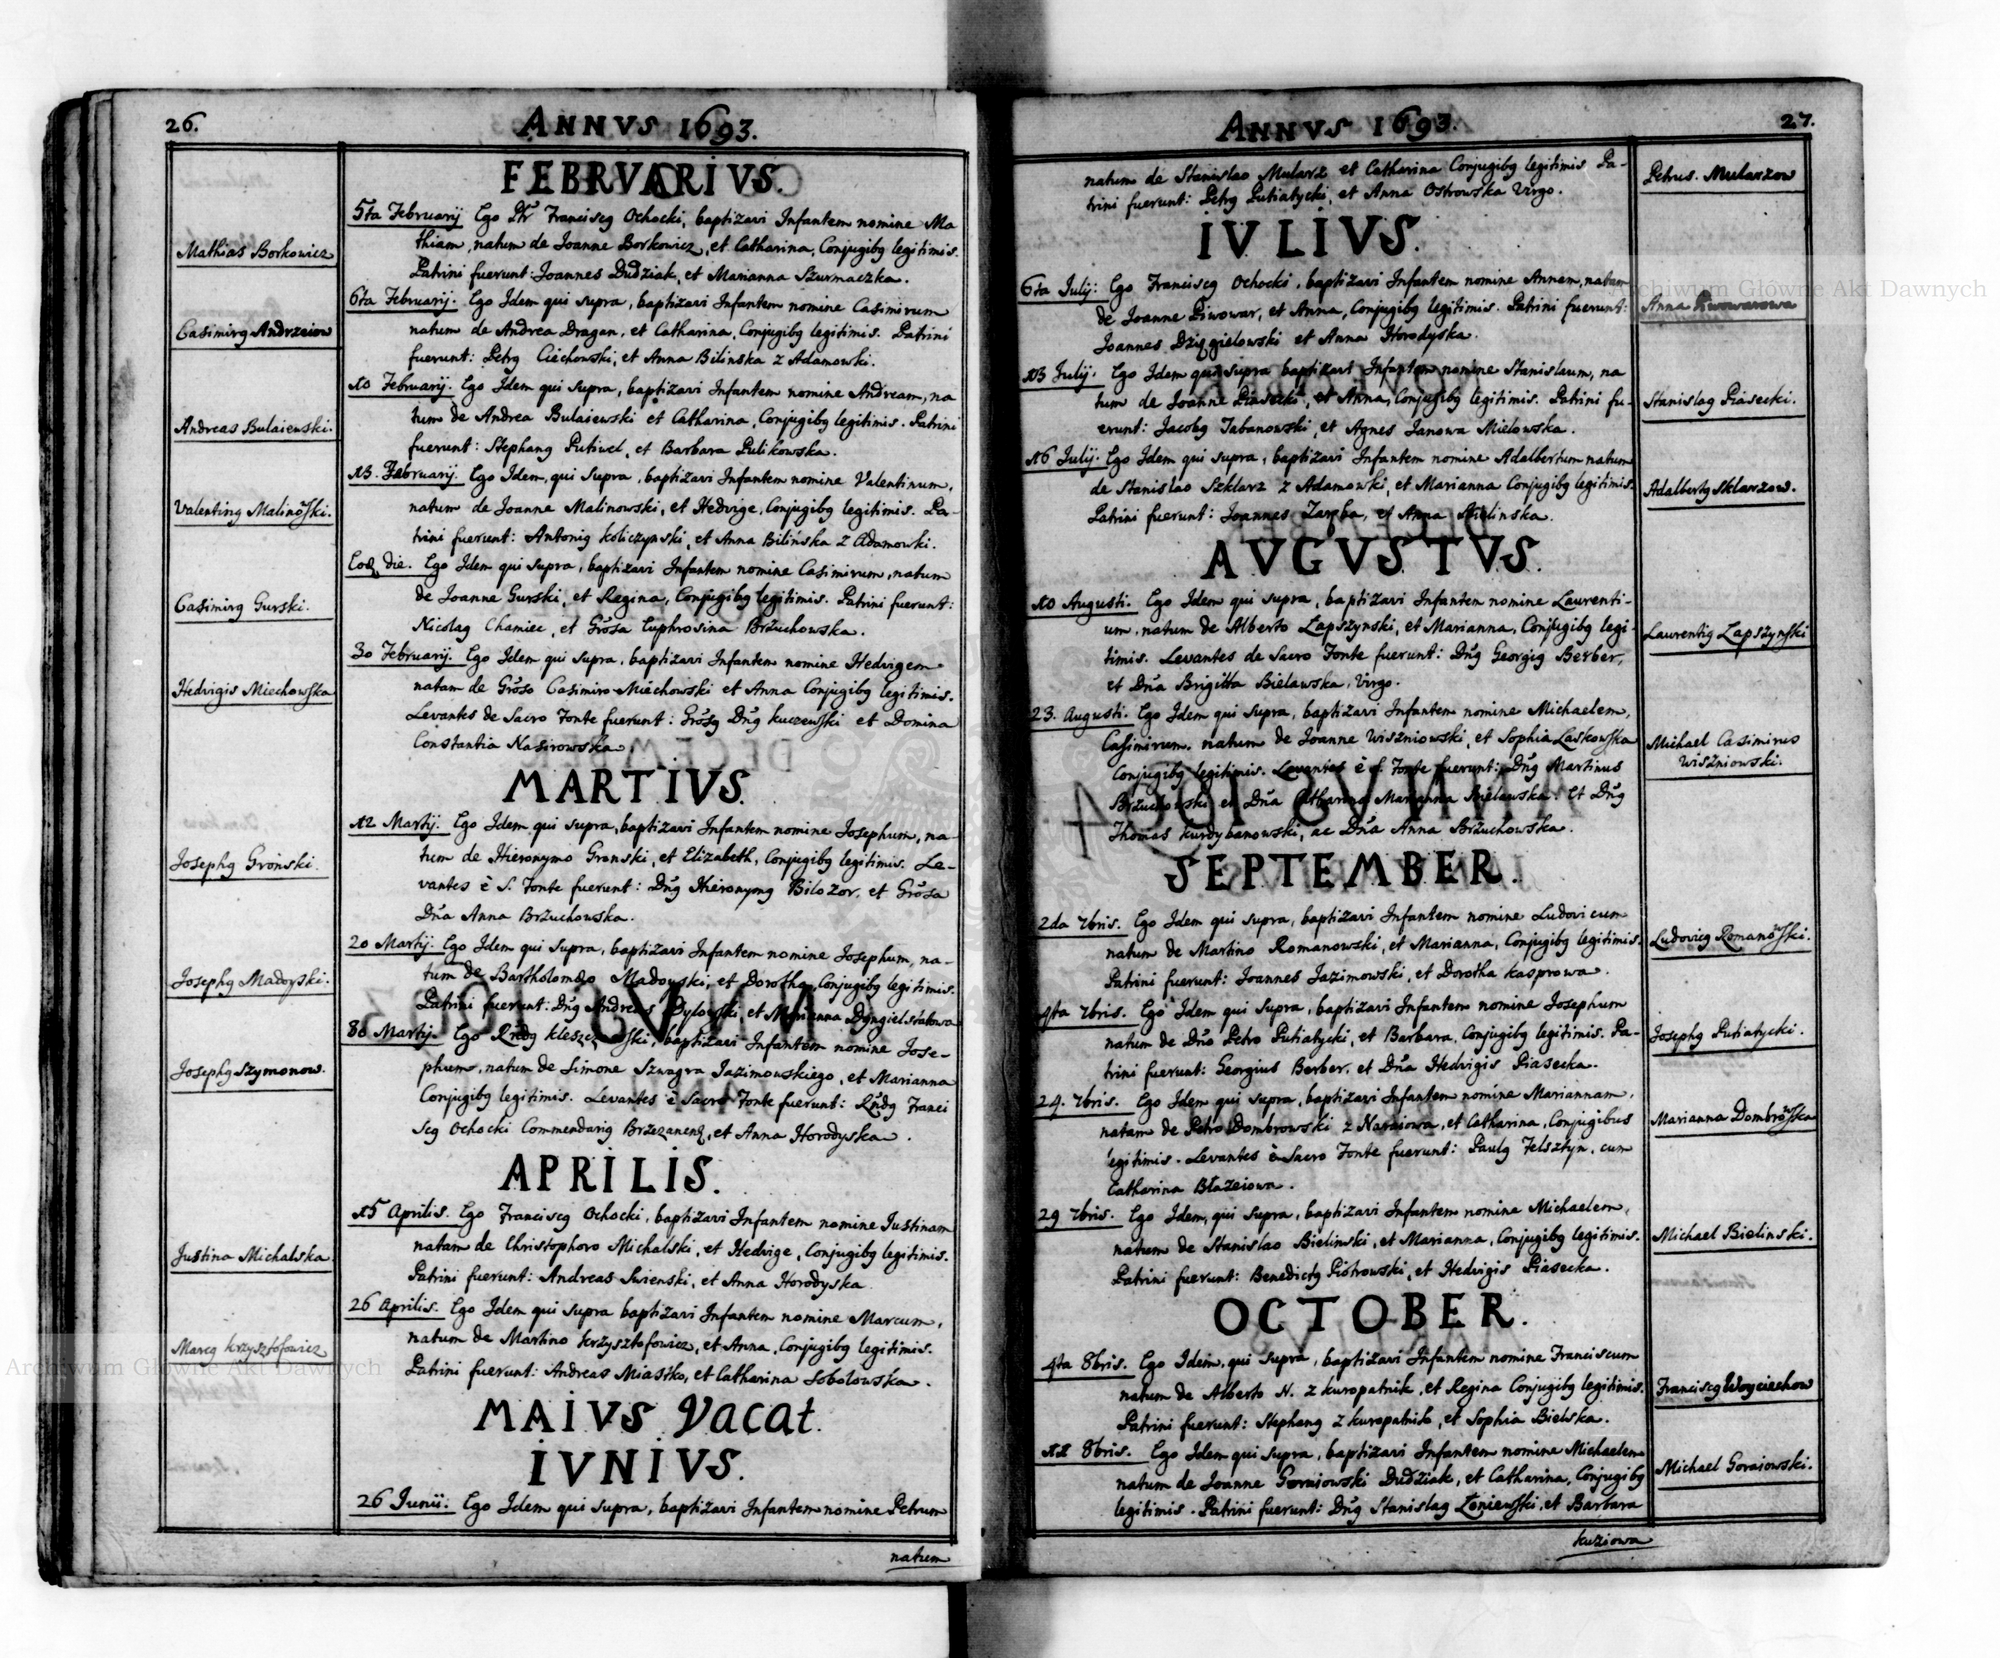 26.
ANNVS 1693.
FEBRVARIVS.
Mathias Borkowicz
5ta Februarij Ego Pr Franciscq Ochocki, baptizavi Infantem nomine Ma
thiam, natum de Joanne Borkowicz, et Catharina, Conjugibq legitimis.
Patrini fuerunt: Joannes Dudziak, et Marianna Szurmaczka.
Casimirq Andrzeiow
6ta Februarij. Ego Idem qui supra, baptizavi Infantem nomine Casimirum
natum de Andrea Dragan, et Catharina, Conjugibq legitimis. Patrini
fuerunt: Petrq Ciechowski, et Anna Bilinska z Adamowki.
Andreas Bulaiewski.
10 Februarij. Ego Idem qui supra, baptizavi Infantem nomine Andream, na
tum de Andrea Bulaiewski et Catharina, Conjugibq legitimis. Patrini
fuerunt: Stephanq Putiwel, et Barbara Pulikowska.
Valentinq Malinowski.
13. Februarij. Ego Idem, qui supra, baptizavi Infantem nomine Valentinum,
natum de Joanne Malinowski, et Hedvige, Conjugibq legitimis. Pa-
trini fuerunt: Antoniq Koliczynski, et Anna Bilinska z Adamowki.
Casimirq Gurski.
Eoq die. Ego Idem qui supra, baptizavi Infantem nomine Casimirum, natum
de Joanne Gurski, et Regina, Conjugibq legitimis. Patrini fuerunt:
Nicolaq Chamiec, et Grosa Euphrosina Brzuchowska.
Hedvigis Miechowska
30 Februarij. Ego Idem qui supra, baptizavi Infantem nomine Hedvigem
natam de Groso Casimiro Miechowski et Anna Conjugibq legitimis.
Levantes de Sacro Fonte fuerunt: Grosq Dnq Kuczewski et Domina
Constantia Nasirowska.
MARTIVS.
Josephq Gronski.
12 Martij. Ego Idem qui supra, baptizavi Infantem nomine Josephum, na-
tum de Hieronymo Gronski, et Elizabeth, Conjugibq legitimis. Le-
vantes è S. Fonte fuerunt: Dnq Hieronymq Bilozor, et Grosa
Dna Anna Brzuchowska.
Josephq Madoyski.
20 Martij. Ego Idem qui supra, baptizavi Infantem nomine Josephum, na-
tum de Bartholomæo Madoyski, et Dorothea, Conjugibq legitimis.
Patrini fuerunt: Dnq Andreas Dylowski, et Marianna
Josephq Szymonow.
80 Martij. Ego Rndq baptizavi Infantem nomine Jose-
phum, natum de Simone Szwagra Jazimowskiego, et Marianna
Conjugibq legitimis. Levantes è Sacro Fonte fuerunt: Rndq Franci
scq Ochocki Commendariq Brzezanenq, et Anna Horodyska.
APRILIS.
Justina Michalska
15 Aprilis. Ego Franciscq Ochocki, baptizavi Infantem nomine Justinam
natam de Christophoro Michalski, et Hedvige, Conjugibq legitimis.
Patrini fuerunt: Andreas Swienski, et Anna Horodyska
Marcq Krzysztofowicz
26 Aprilis. Ego Idem qui supra baptizavi Infantem nomine Marcum,
natum de Martino Krzysztofowicz, et Anna, Conjugibq legitimis.
Patrini fuerunt: Andreas Miastko, et Catharina Sobolowska.
MAIVS Vacat.
IVNIVS.
26 Junii. Ego Idem qui supra, baptizavi Infantem nomine Petrum
natum
ANNVS 1693.
27.
Petrus. Mularzow
natum de Stanislao Mularz et Catharina Conjugibq legitimis Pa-
trini fuerunt: Petrq Putiatycki, et Anna Ostrowska Virgo.
IVLIVS.
Anna Piwowarowa
6ta Julij: Ego Franciscq Ochocki, baptizavi Infantem nomine Annam, natam
de Joanne Piwowar, et Anna, Conjugibq legitimis. Patrini fuerunt:
Joannes Dzięgielowski et Anna Horodyska.
Stanislaq Piasecki.
13 Julij. Ego Idem qui supra baptizavi Infantem nomine Stanislaum, na
tum de Joanne Piasecki, et Anna, Conjugibq legitimis. Patrini fu-
erunt: Jacobq Tabanowski, et Agnes Janowa Mielowska.
Adalbertq Sklarzow.
16 Julij. Ego Idem qui supra, baptizavi Infantem nomine Adalbertum natum
de Stanislao Szklarz z Adamowki, et Marianna Conjugibq legitimis.
Patrini fuerunt: Joannes Zaręba, et Anna
AVGVSTVS.
Laurentiq Łapszynski
10 Augusti. Ego Idem qui supra, baptizavi Infantem nomine Laurenti-
um, natum de Alberto Łapszynski, et Marianna, Conjugibq legi-
timis. Levantes de Sacro Fonte fuerunt: Dnq Georgiq Berber,
et Dna Brigitta Bielawska, Virgo.
Michael Casimirus
Wiszniowski.
23. Augusti. Ego Idem qui supra, baptizavi Infantem nomine Michaelem,
Casimirum. natum de Joanne Wiszniowski, et Sophia Laskowska
Conjugibq legitimis. Levantes è S. Fonte fuerunt: Dnq Martinus
Brzuchowski et Dna Catharina Marianna Bielawska. Et Dnq
Thomas Kurdybanowski, ac Dna Anna Brzuchowska.
SEPTEMBER.
Ludovicq Romanowski.
2da 7bris. Ego Idem qui supra, baptizavi Infantem nomine Ludovicum
natum de Martino Romanowski, et Marianna, Conjugibq legitimis.
Patrini fuerunt: Joannes Jazimowski, et Dorotha Kasprowa.
Josephq Putiatycki.
4ta 7bris. Ego Idem qui supra, baptizavi Infantem nomine Josephum
natum de Dno Petro Putiatycki, et Barbara, Conjugibq legitimis. Pa-
trini fuerunt: Georgius Berber, et Dna Hedvigis Piasecka.
Marianna Dombrowska
24. 7bris. Ego Idem qui supra, baptizavi Infantem nomine Mariannam,
natam de Petro Dombrowski z Naraiowa, et Catharina, Conjugibus
legitimis. Levantes è Sacro Fonte fuerunt: Paulq Felsztyn, cum
Catharina Błazeiowa.
Michael Bielinski.
29 7bris. Ego Idem, qui supra, baptizavi Infantem nomine Michaelem,
natum de Stanislao Bielinski, et Marianna, Conjugibq legitimis.
Patrini fuerunt: Benedictq Piotrowski, et Hedvigis Piasecka.
OCTOBER.
Franciscq Woyciechow
4ta 8bris. Ego Idem, qui supra, baptizavi Infantem nomine Franciscum
natum de Alberto N. z Kuropatnik, et Regina Conjugibq legitimis.
Patrini fuerunt: Stephanq z Kuropatnik, et Sophia Bielska.
Michael Goraiowski.
11 8bris. Ego Idem qui supra, baptizavi Infantem nomine Michaelem
natum de Joanne Goraiowski Dudziak, et Catharina, Conjugibq
legitimis. Patrini fuerunt: Dnq Stanislaq Łoniewski, et Barbara
Kuziowa
Archiwum Główne Akt Dawnych
Archiwum Główne Akt Dawnych